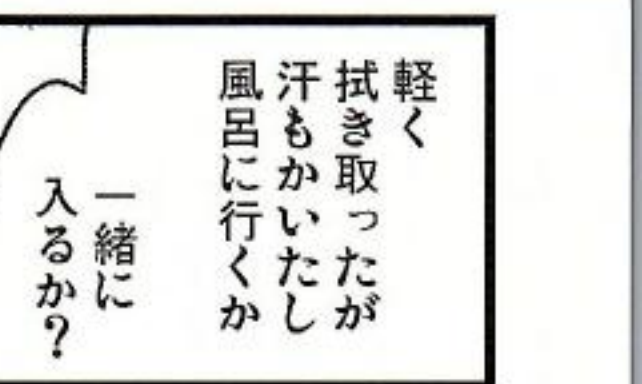 軽く
拭き取ったが
汗もかいたし
風呂に行くか
一緒に
入るか？